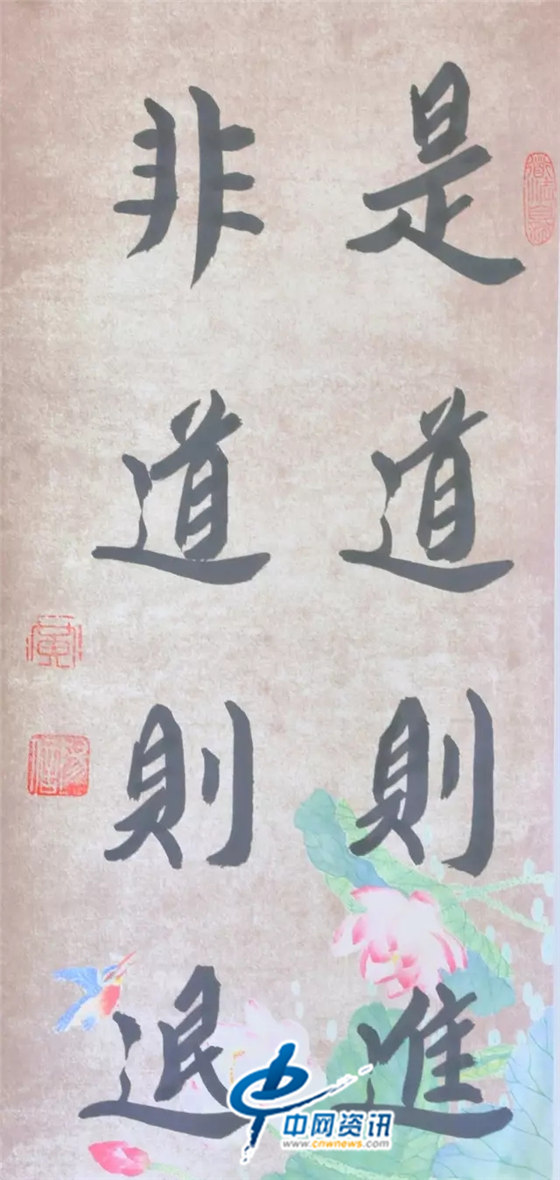 是道則進
非道則退
中网资讯
www.cnwnews.com